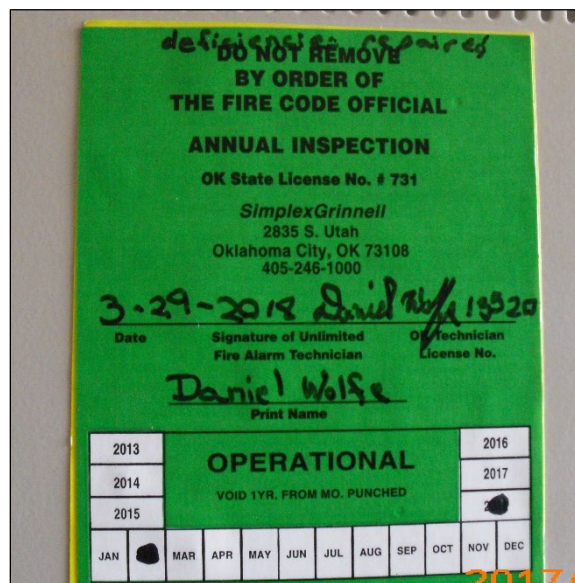 deficiencies repaired
DO NOT REMOVE
BY ORDER OF
THE FIRE CODE OFFICIAL
ANNUAL INSPECTION
OK State License No. # 731
SimplexGrinnell
2835 S. Utah
Oklahoma City, OK 73108
405-246-1000
3-29-2018 Daniel Wolfe 13520
Date Signature of Unlimited Fire Alarm Technician OK Technician License No.
Daniel Wolfe
Print Name
2013 2016
2014 2017
2015
OPERATIONAL
VOID 1YR. FROM MO. PUNCHED
JAN MAR APR MAY JUN JUL AUG SEP OCT NOV DEC
2017